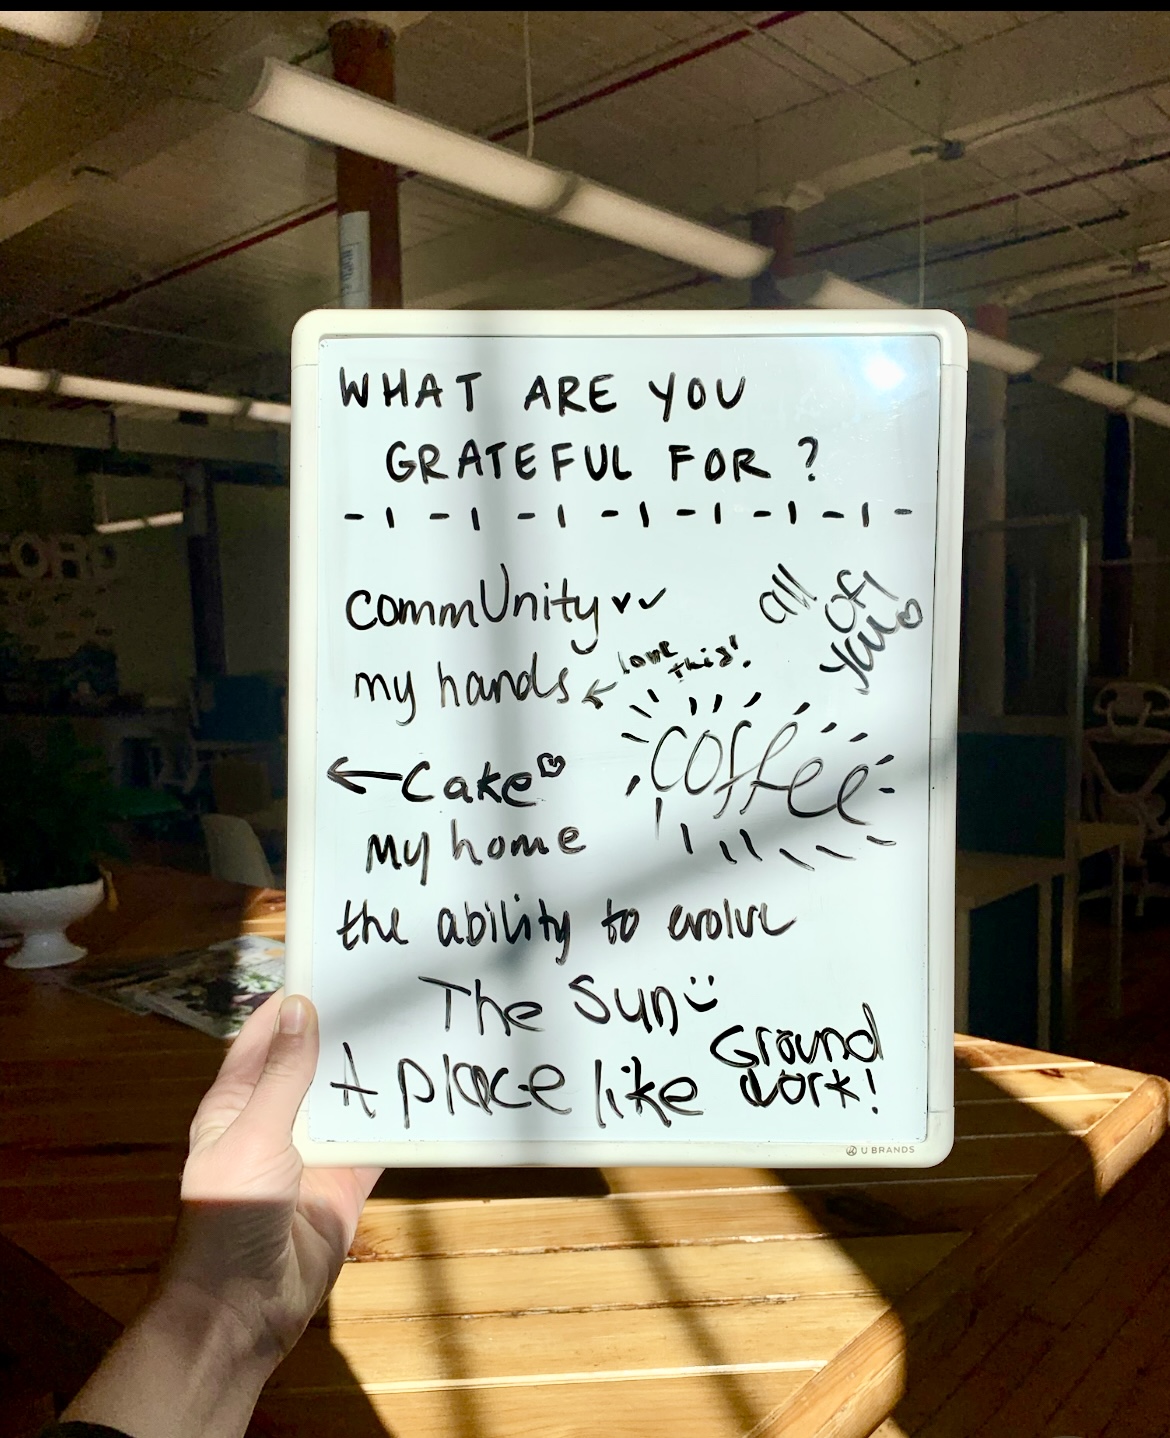 WHAT ARE YOU
GRATEFUL FOR?
commUnity
all
of
you
my hands
love
this!
coffee
Cake
my home
the ability to evolve
The Sun
A place like
Ground
work!
U BRANDS
FORD